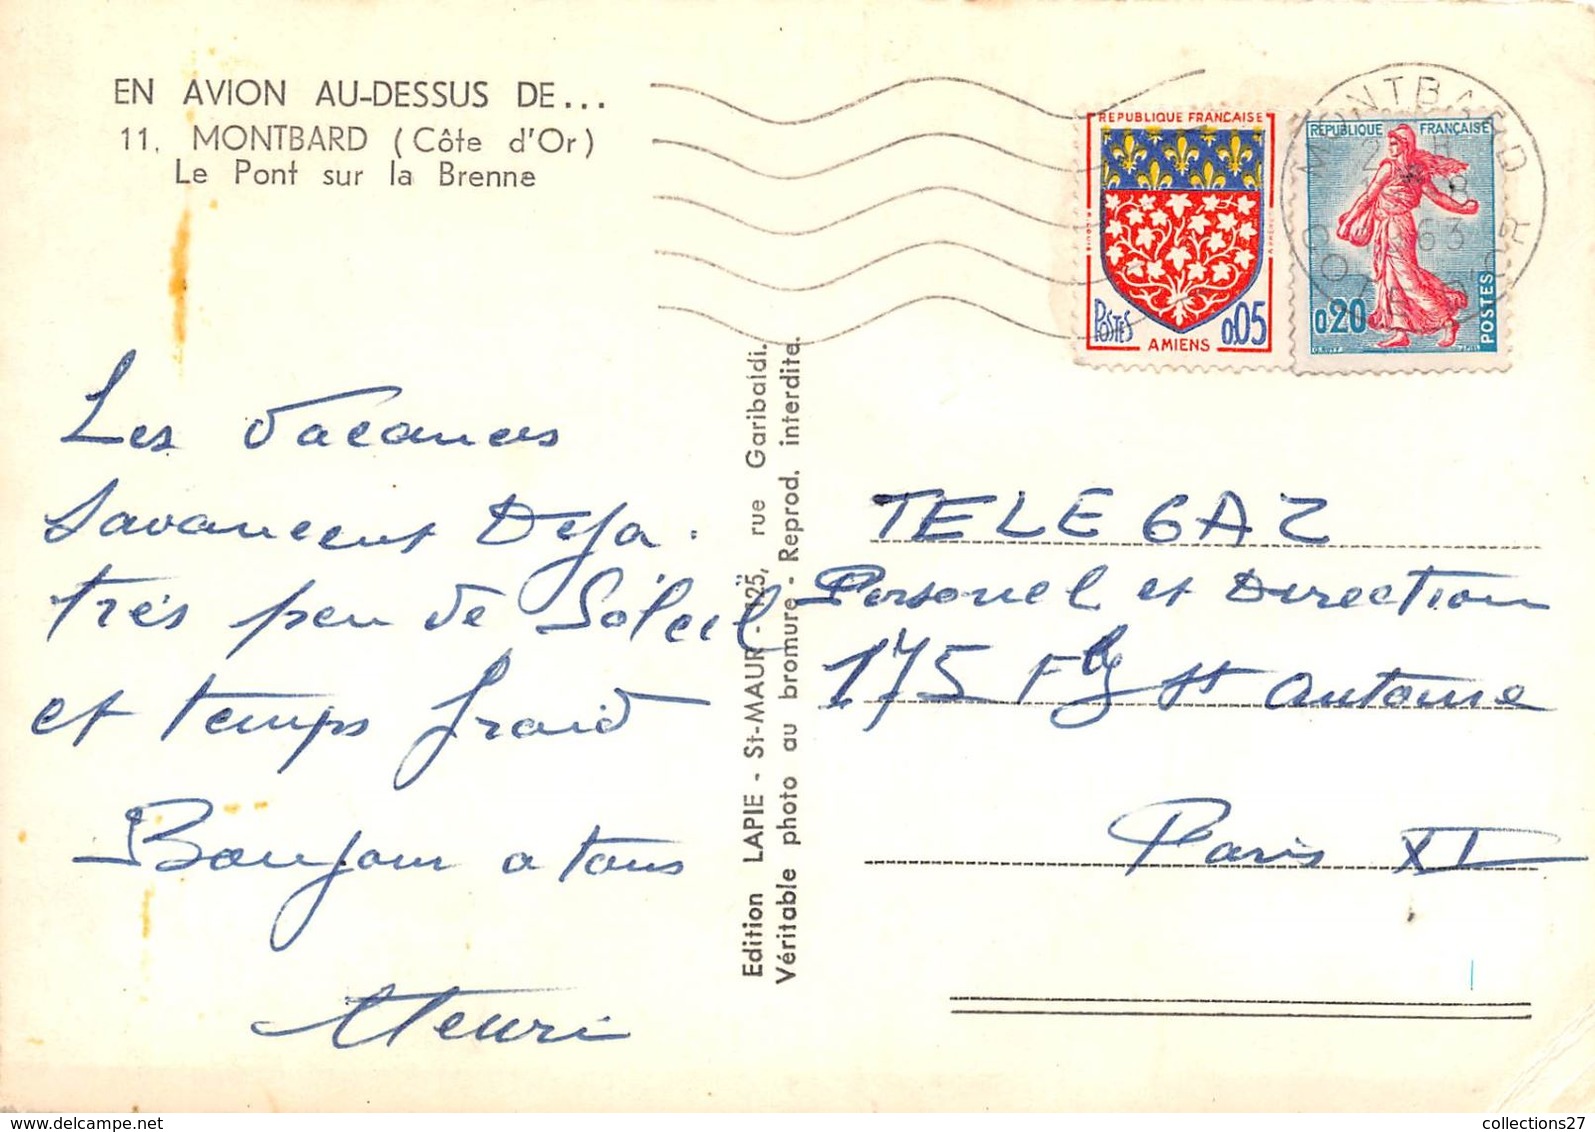 EN AVION AU-DESSUS DE...
11. MONTBARD (Côte d'Or)
Le Pont sur la Brenne
Les Vacances
savancent Deja.
très peu de Soleil
et temps froid
Bonjour a tous
Henri
Edition LAPIE - St-MAUR - 125, rue Garibaldi.
Véritable photo au bromure - Reprod. interdite.
REPUBLIQUE FRANCAISE
POSTES
0,05
AMIENS
RÉPUBLIQUE FRANÇAISE
0,20
POSTES
MONTBARD
COTE D'OR
63
TELEGAZ
Personel et Direction
175 Fbg St Antoine
Paris XI
collections27